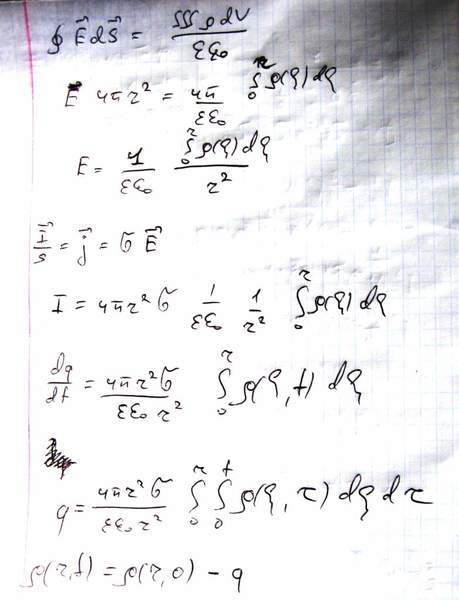 ∮ E⃗ dS⃗ = ∭ρ dV / εε₀
E 4πr² = 4π/εε₀ ∫₀ʳ ρ(ξ) dξ
E = 1/εε₀ ∫₀ʳ ρ(ξ) dξ / r²
I⃗/S = j⃗ = σ E⃗
I = 4πr² σ 1/εε₀ 1/r² ∫₀ʳ ρ(ξ) dξ
dq/dt = 4πr²σ / εε₀ r² ∫₀ʳ ρ(ξ, t) dξ
q = 4πr²σ / εε₀ r² ∫₀ʳ ∫₀ᵗ ρ(ξ, τ) dξ dτ
ρ(r,t) = ρ(r,0) − q